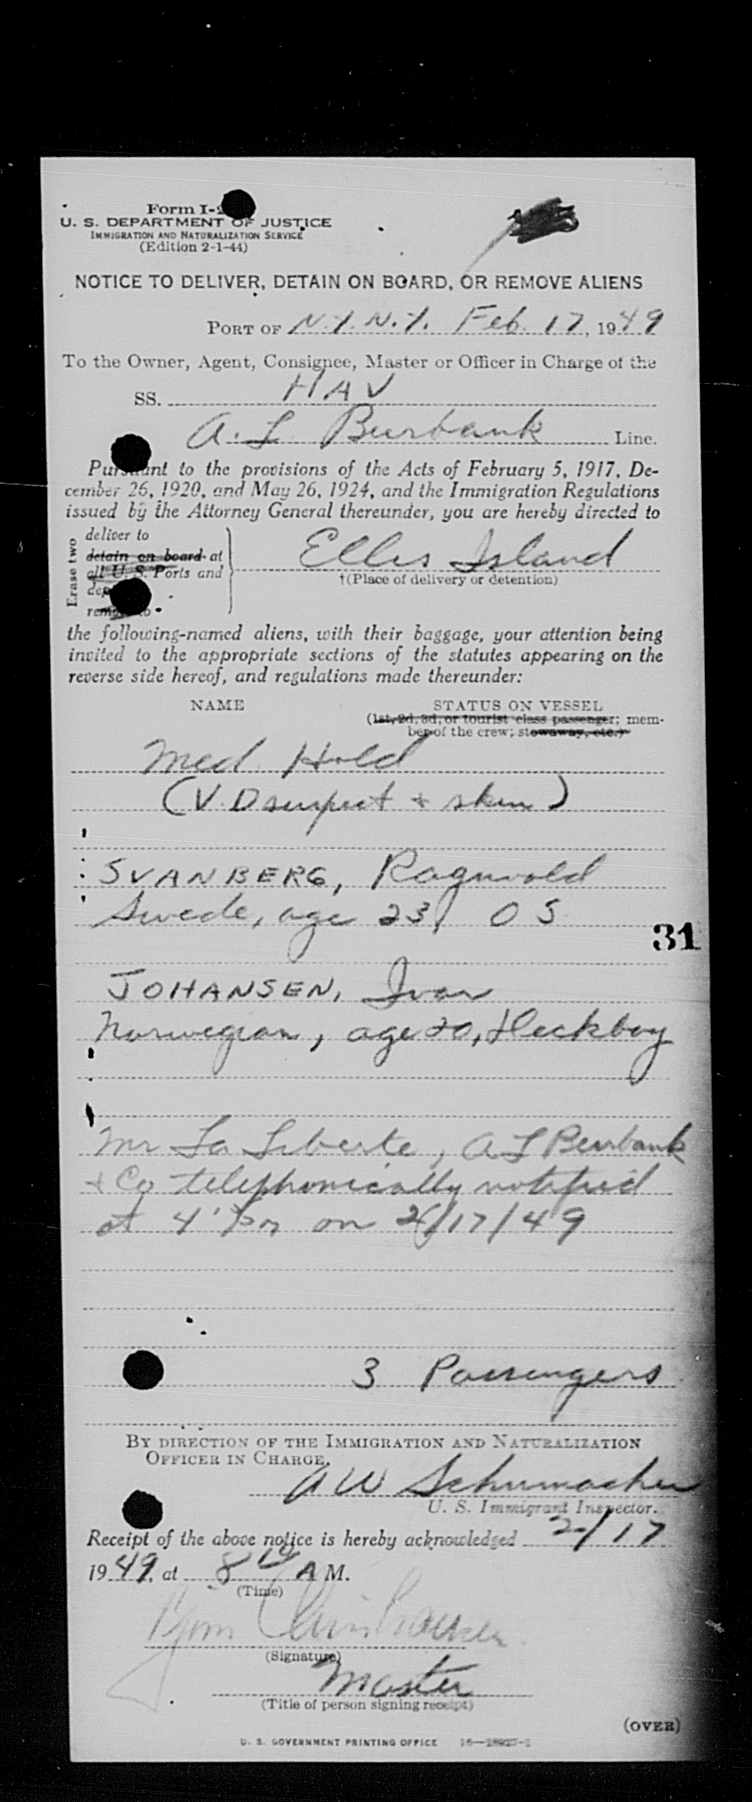 Form I-2
U. S. DEPARTMENT OF JUSTICE
IMMIGRATION AND NATURALIZATION SERVICE
(Edition 2-1-44)
NOTICE TO DELIVER, DETAIN ON BOARD, OR REMOVE ALIENS
PORT OF N.Y. N.Y. Feb. 17, 1949
To the Owner, Agent, Consignee, Master or Officer in Charge of the
SS. HAV
A. L Burbank Line.
Pursuant to the provisions of the Acts of February 5, 1917, De-
cember 26, 1920, and May 26, 1924, and the Immigration Regulations
issued by the Attorney General thereunder, you are hereby directed to
Erase two
deliver to
detain on board at
all U. S. Ports and
Ellis Island
†(Place of delivery or detention)
the following-named aliens, with their baggage, your attention being
invited to the appropriate sections of the statutes appearing on the
reverse side hereof, and regulations made thereunder:
NAME STATUS ON VESSEL
(1st, 2d, 3d, or tourist class passenger; mem-
ber of the crew; stowaway, etc.)
Med. Hold
(V. D suspect + skin)
SVANBERG, Ragnvald
Swede, age 23, O S
31
JOHANSEN, Ivar
Norwegian, age 20, Deckboy
Mr La Liberte, A L Burbank
+ Co telephonically notified
at 4 Pm on 2/17/49
3 Passengers
BY DIRECTION OF THE IMMIGRATION AND NATURALIZATION
OFFICER IN CHARGE.
A W Schumacher
U. S. Immigrant Inspector.
Receipt of the above notice is hereby acknowledged 2/17
1949, at 8 A M.
(Time)
(Signature)
Master
(Title of person signing receipt)
(OVER)
U. S. GOVERNMENT PRINTING OFFICE